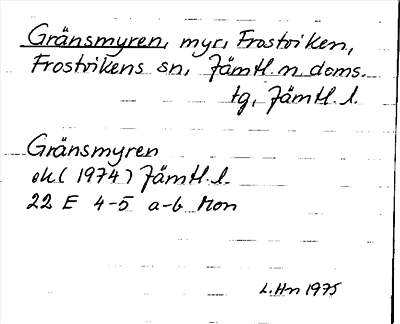 Gränsmyren, myr, Frostviken,
Frostvikens sn, Jämtl. n. doms.
tg, Jämtl. l.
Gränsmyren
ek (1974) Jämtl. l.
22 E 4-5 a-b Mon
L. Hn 1975